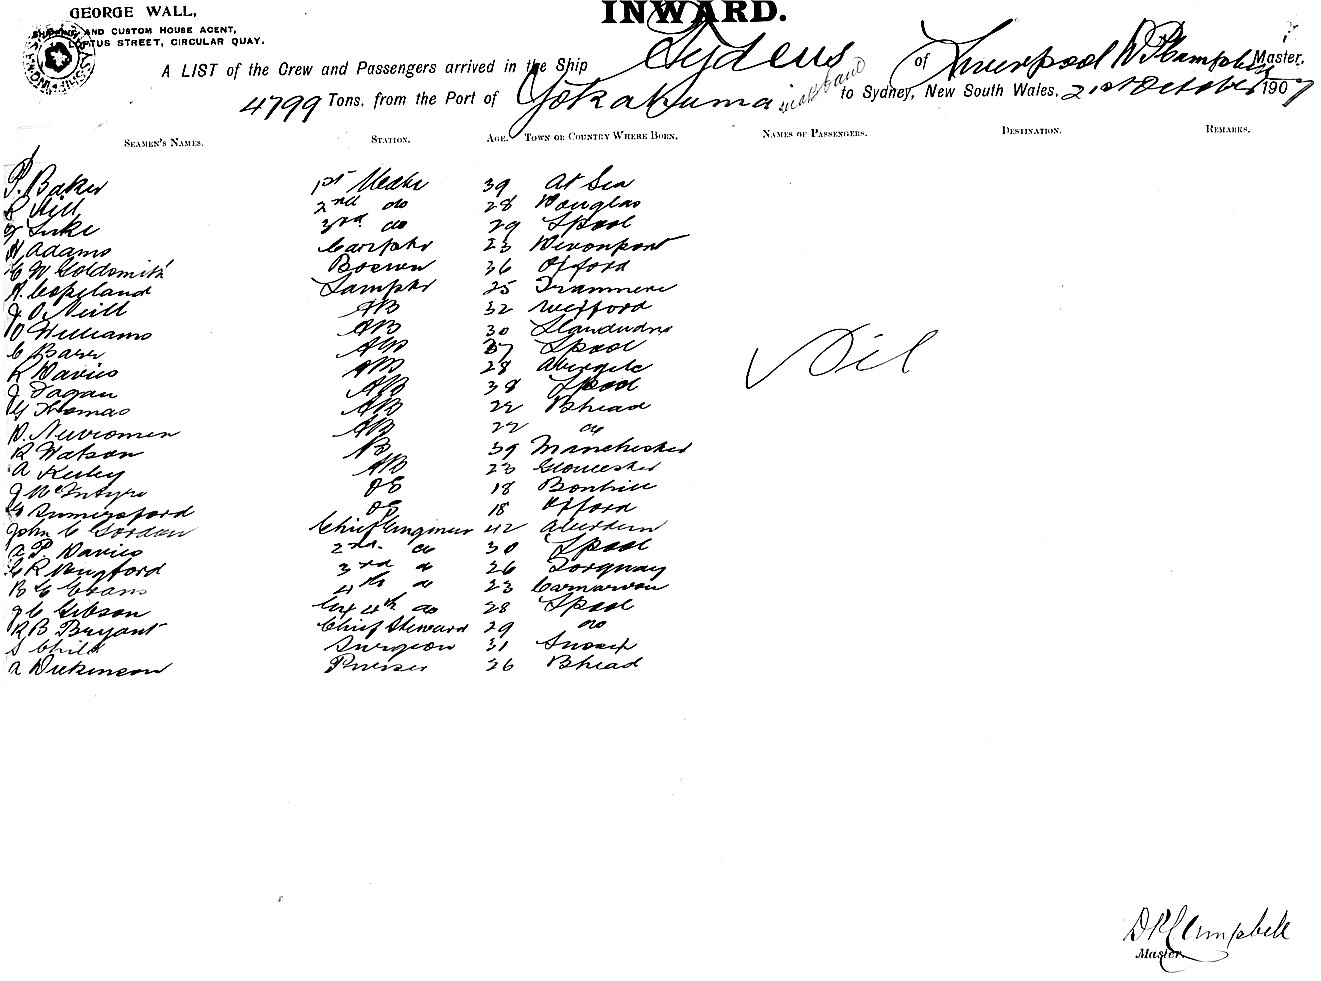 GEORGE WALL,
AND CUSTOM HOUSE AGENT,
LOFTUS STREET, CIRCULAR QUAY.
INWARD.
A LIST of the Crew and Passengers arrived in the Ship Tydeus of Liverpool D P Campbell Master,
4799 Tons, from the Port of Yokahuma to Sydney, New South Wales, 21st October 1907
SEAMEN'S NAMES. STATION. AGE. TOWN OR COUNTRY WHERE BORN. NAMES OF PASSENGERS. DESTINATION. REMARKS.
P. Baker 1st Mate 39 At Sea
R Hill 2nd do 28 Douglas
Luke 3rd do 29 Lpool
H Adams Carptr 23 Devonport
C W Goldsmith Boswn 36 Offord
A. Copeland Lamptr 25 Tranmere
J. O. Neill AB 32 Wexford
O Williams AB 30 Llandudno
C Barr AB 37 Lpool
R Davies AB 28 Abergele
J Fagan AB 38 Lpool
G Thomas AB 22 Bhead
D. AB 22 do
R Watson B 39 Manchester
A Kerley AB 23 Gloucester
J McIntyre OS 18 Bonhill
G OS 18 Offord
John C Gordon Chief Engineer 42 Aberdeen
A P. Davies 2nd. do 30 Lpool
R Mugford 3rd do 26 Torquay
B G Evans 4th do 23 Carnarvon
J C Gibson Ex 4th do 28 Lpool
R B Bryant Chief Steward 29 do
S Child Surgeon 31 Sussex
A Dickinson Purser 26 Bhead
Nil
D P Campbell
Master.